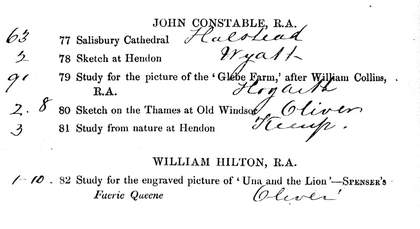 JOHN CONSTABLE, R.A.
63 77 Salisbury Cathedral Halstead
3 78 Sketch at Hendon Wyatt
9 79 Study for the picture of the ‘Glebe Farm,’ after William Collins,
R.A. Hogarth
2. 8 80 Sketch on the Thames at Old Windsor Oliver
3 81 Study from nature at Hendon Kemp.
WILLIAM HILTON, R.A.
1-10. 82 Study for the engraved picture of ‘Una and the Lion’—SPENSER'S
Faerie Queene Oliver